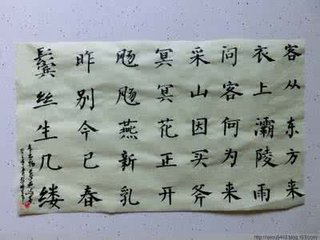 客从东方来
衣上灞陵雨
问客何为来
采山因买斧
冥冥花正开
飏飏燕新乳
昨别今已春
鬓丝生几缕